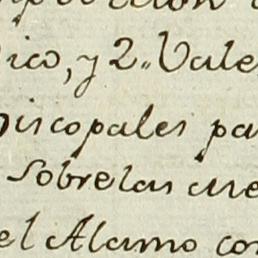 ico, y 2.. Vale
iscopales pa
sobrelas cue
el Alamo con